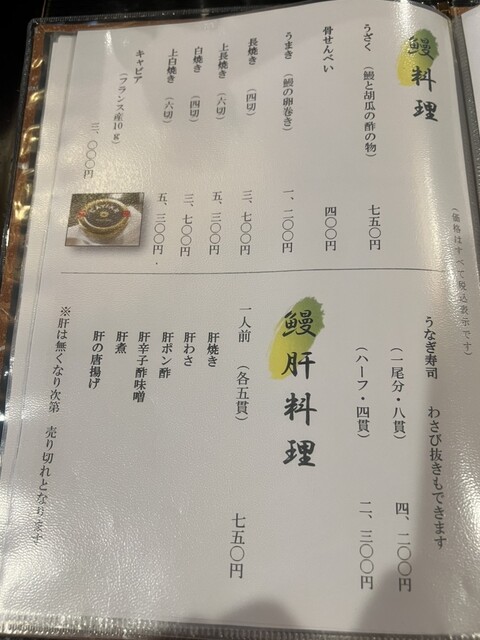 鰻料理
(価格はすべて税込表示です)
うざく (鰻と胡瓜の酢の物) 七五〇円
骨せんべい 四〇〇円
うまき (鰻の卵巻き) 一、二〇〇円
長焼き (四切) 三、七〇〇円
上長焼き (六切) 五、三〇〇円
白焼き (四切) 三、七〇〇円
上白焼き (六切) 五、三〇〇円
キャビア (フランス産10g) 三、〇〇〇円
うなぎ寿司 わさび抜きもできます
(一尾分・八貫) 四、二〇〇円
(ハーフ・四貫) 二、三〇〇円
鰻肝料理
一人前 (各五貫) 七五〇円
肝焼き
肝わさ
肝ポン酢
肝辛子酢味噌
肝煮
肝の唐揚げ
※肝は無くなり次第 売り切れとなります